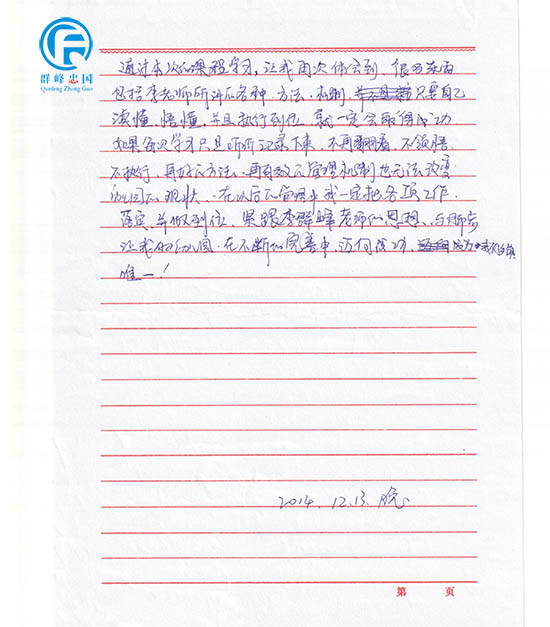 群峰忠国
Qunfeng Zhong Guo
通过本次的课程学习,让我再次体会到,很多东西
包括李老师所讲的各种方法、机制,只要自己
读懂、悟懂,并且执行到位,就一定会取得成功
如果每次学习只是听听记录下来,不再翻看,不领悟,
不执行,再好的方法、再有效的管理机制也无法改变
幼儿园的现状、在以后的管理中我一定把各项工作
落实,并做到位,紧跟李群峰老师的思想、与
让我的幼儿园,在不断的完善中,迈向成功,成为
唯一!
2014.12.13.晚
第 页